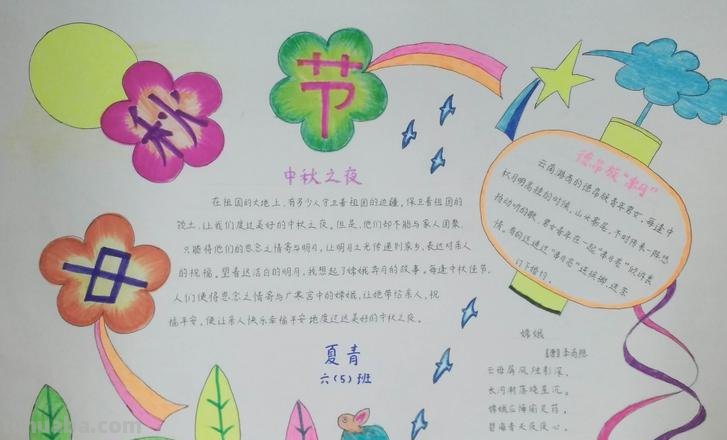 中
秋
节
中秋之夜
在祖国的大地上,有多少人守卫着祖国的边疆,保卫着祖国的
领土,让我们度过美好的中秋之夜。但是,他们却不能与家人团聚,
只能将他们的思念之情寄与明月,让明月之光传递到家乡,表达对亲人
的祝福。望着这洁白的明月,我想起了嫦娥奔月的故事。每逢中秋佳节,
人们便将思念之情寄与广寒宫中的嫦娥,让她带给亲人,祝
福平安,便让亲人快乐幸福平安地度过这美好的中秋之夜。
夏青
六(5)班
德昂族"串月"
云南潞西的德昂族青年男女,每逢中
秋月明高挂的时候,山头寨尾,不时传来一阵悠
扬动听的歌,男女青年在一起"串月亮"倾诉衷
情。有的还通过"串月亮"送槟榔,送茶
订下婚约。
嫦娥
[唐]李商隐
云母屏风烛影深,
长河渐落晓星沉。
嫦娥应悔偷灵药,
碧海青天夜夜心。